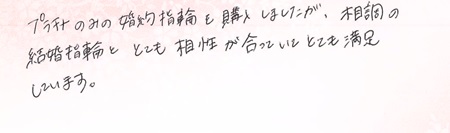 プラチナのみの婚約指輪を購入しましたが、相調の
結婚指輪と とても 相性が合っていて とても満足
しています。